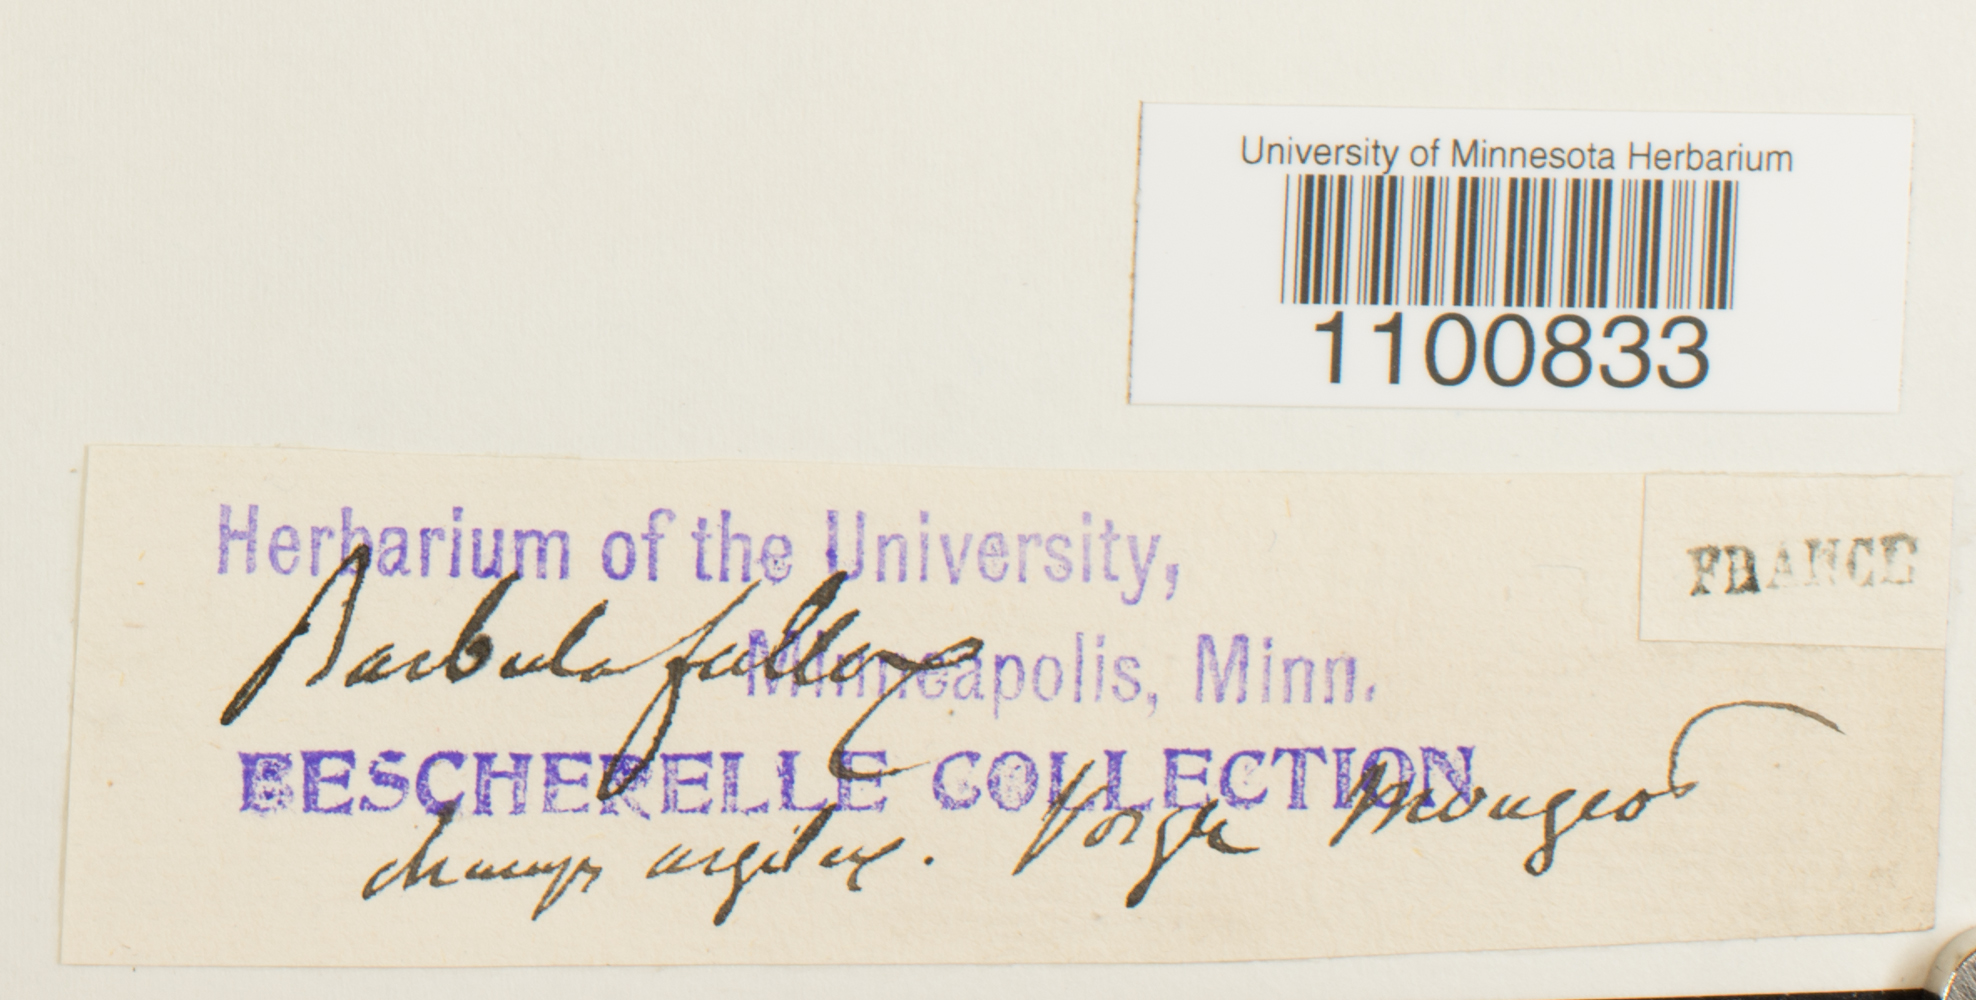 University of Minnesota Herbarium
1100833
Herbarium of the University,
FRANCE
Barbula fallax
Minneapolis, Minn.
BESCHERELLE COLLECTION
champs argileux. Vosges Mougeot